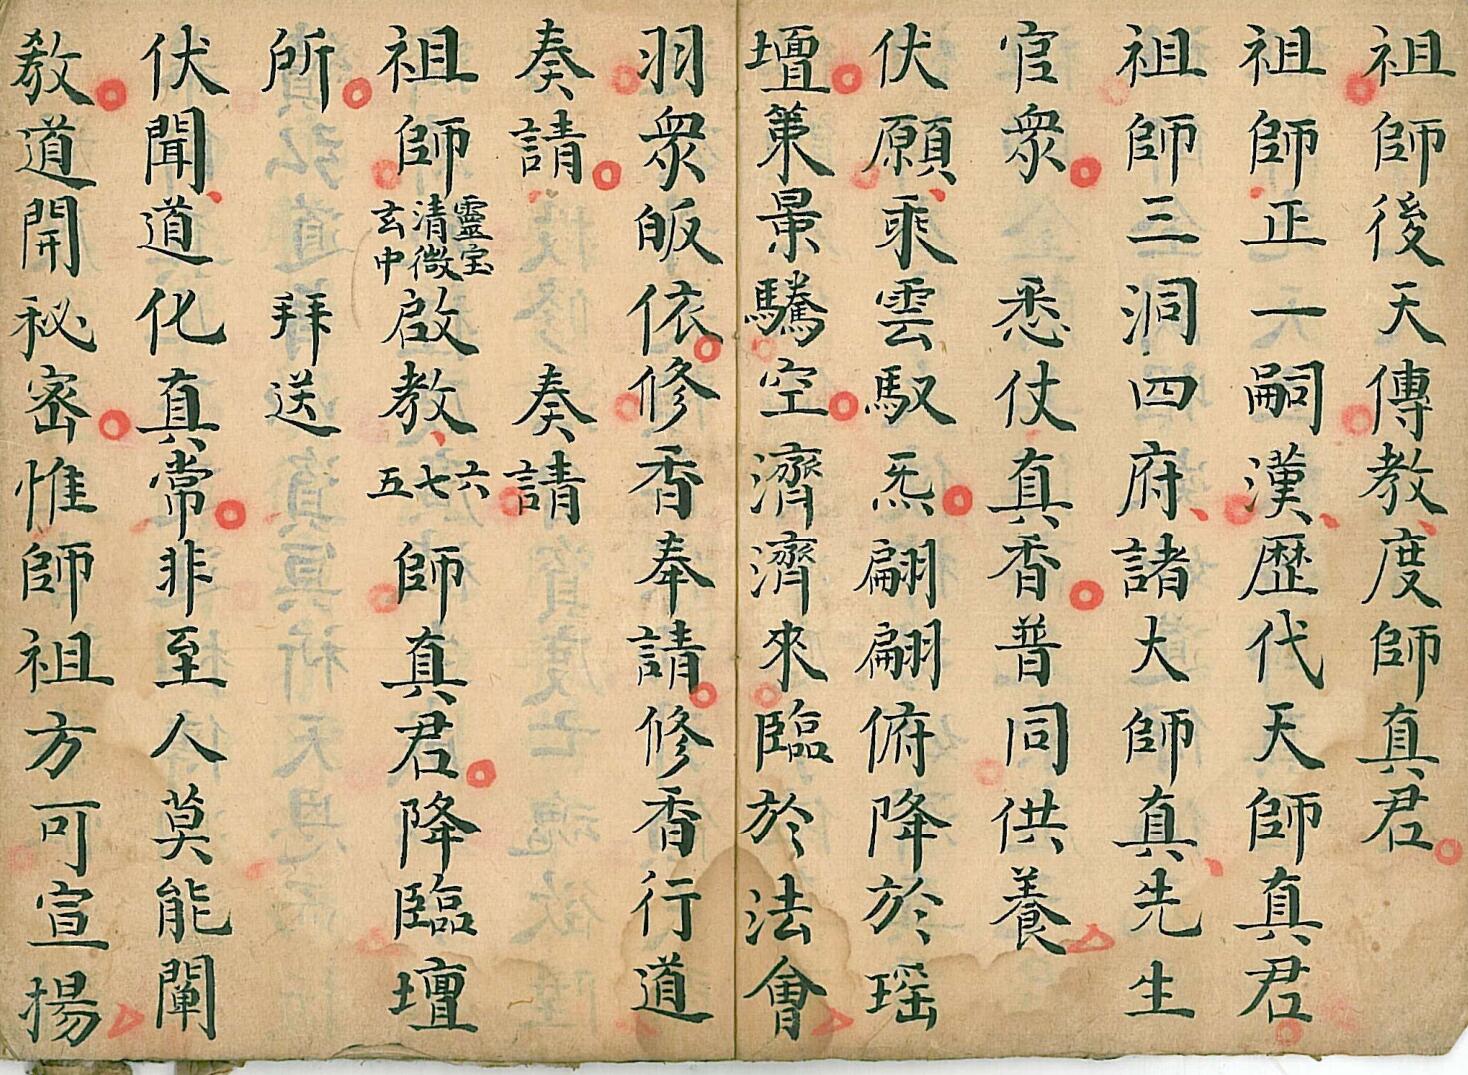 祖師後天傳教度師真君
祖師正一嗣漢歷代天師真君
祖師三洞四府諸大師真先生
官衆 悉仗真香普同供養
伏願乘雲馭炁翩翩俯降於瑶
壇策景驂空濟濟來臨於法會
羽衆皈依修香奉請修香行道
奏請 奏請
祖師靈宝清微玄中啟教六七五師真君降臨壇
所 拜送
伏聞道化真常非至人莫能闡
教道開秘密惟師祖方可宣揚